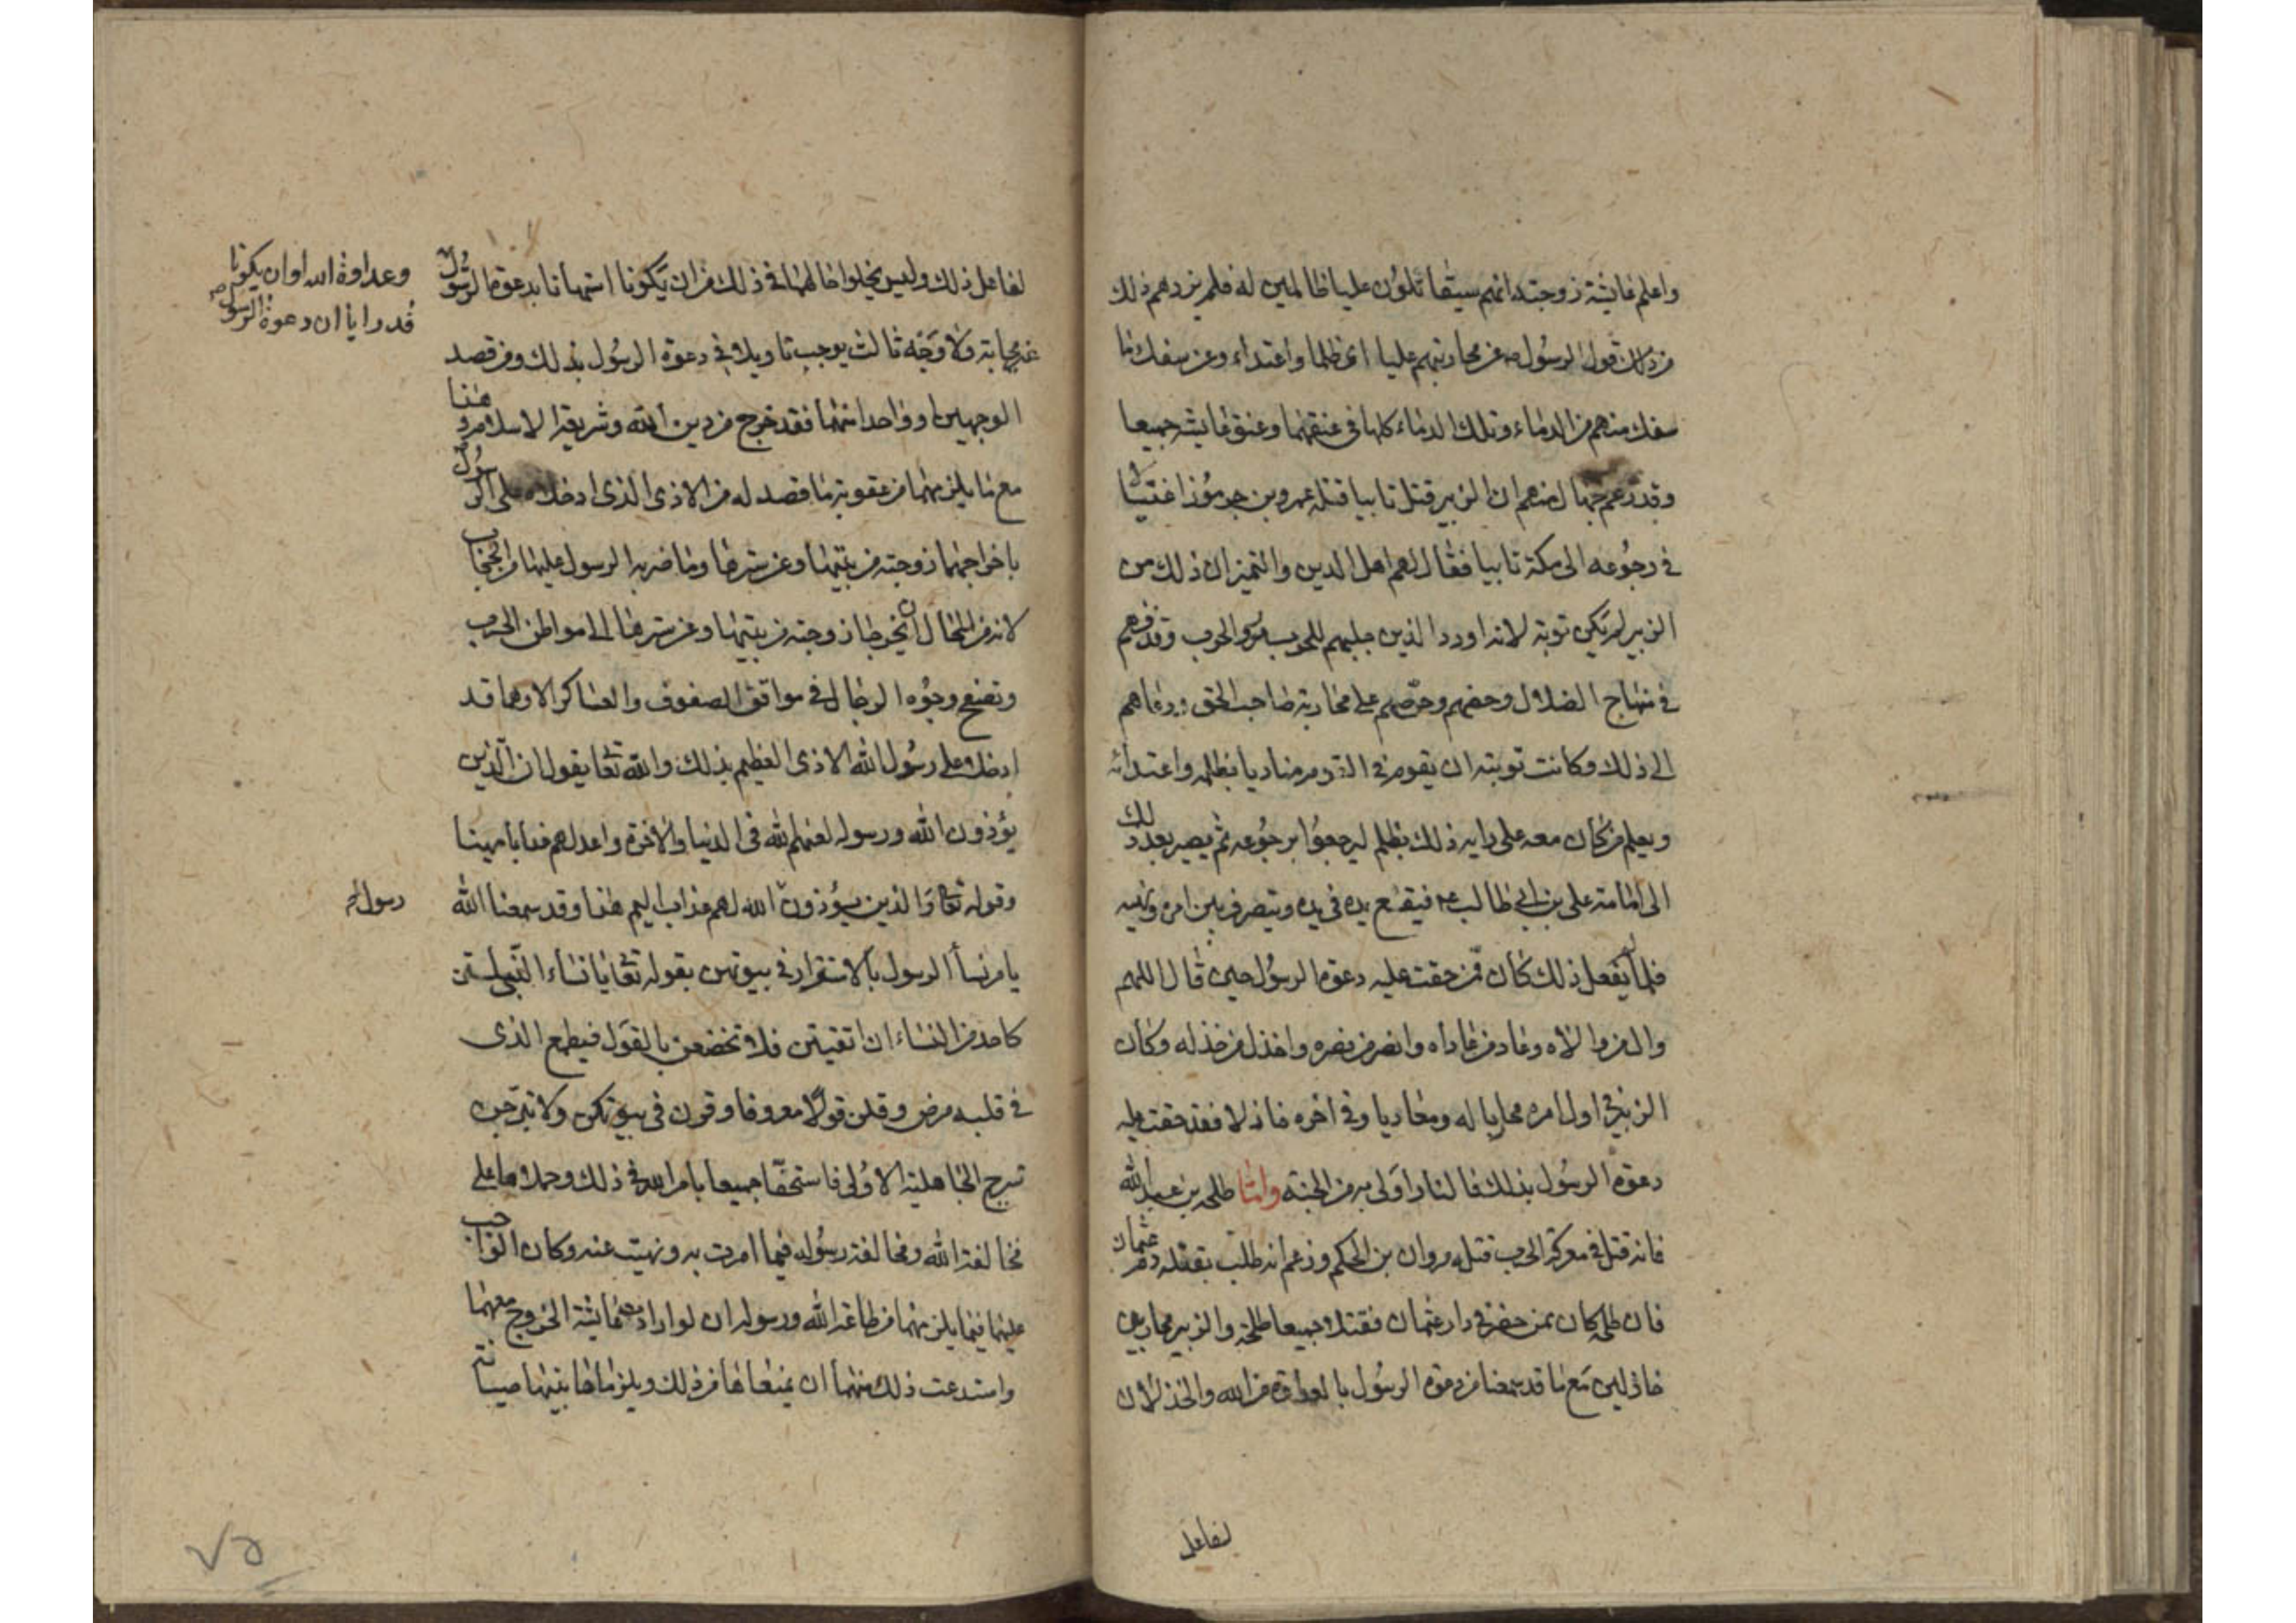 واعلم عايشة زوجته انهم سيقاتلون عليا ظالمين له فلم يزدهم ذلك
من ذلك قول الرسول ص عن محاربتهم عليا اى ظلما واعتداء وعن سفك ما
سفك منهم من الدماء وتلك الدماء كلها في عنقهما وعنق عايشه جميعا
وقد زعم جهال منهم ان الزبير قتل تايبا قتله عمرو بن جرموز اغتيالا
في رجوعه الى مكة تايبا فقال لهم اهل الدين والتميز ان ذلك من
الزبير لم يكن توبة لانه اورد الذين جلبهم للحرب الحرب وقذفهم
في منهاج الضلال وحضهم وحرضهم على محاربة صاحب الحق ودعاهم
الى ذلك وكانت توبته ان يقوم في القوم مناديا بظلمه واعتدائه
ويعلم من كان معه على رايه ذلك بظلم ليرجعوا برجوعه ثم يصير بعد ذلك
الى امامته على بن ابي طالب ع فيضع يده في يده ويتصرف بين امره ونهيه
فلما لم يفعل ذلك كان ممن حقت عليه دعوة الرسول حين قال اللهم
وال من والاه وعاد من عاداه وانصر من نصره واخذل من خذله وكان
الزبير في اول امره محاربا له ومعاديا وفي اخره خاذلا فقد حقت عليه
دعوة الرسول بذلك فالنار اولى به من الجنة واما طلحه بن عبد الله
فانه قتل في معركة الحرب قتله مروان بن الحكم وزعم انه طلب بقتله دم عثمان
فان طلحه كان ممن حضر في دار عثمان فقتلا جميعا طلحة والزبير محاربين
خاذلين مع ما قد سمعنا من دعوة الرسول بالعداوة من الله والخذلان
لفاعل
لفاعل ذلك وليس يخلوا حالهما في ذلك من ان يكونا استهانا بدعوة الرسول
وعداوة الله او ان يكونا
قد رايا ان دعوة الرسول ص
غير مجابة ولا وجه ثالث يوجب تاويلا في دعوة الرسول بذلك ومن قصد
الوجهين او واحدا منهما فقد خرج من دين الله وشريعة الاسلام هذا
مع ما يلزمهما من عقوبة ما قصد له من الاذى الذى ادخلاه على الرسول
باخراجهما زوجته من بيتها وعن سترها وما ضربه الرسول عليها من الحجاب
لانه من المحال ان يخرجا زوجته من بيتها وعن سترها الى مواطن الحرب
وتصفح وجوه الرجال في مواقف الصفوف والعساكر الا وهما قد
ادخلا على رسول الله الاذى العظيم بذلك والله تعا يقول ان الذين
يؤذون الله ورسوله لعنهم الله في الدنيا والاخرة واعد لهم عذابا مهينا
وقوله تعا والذين يؤذون الله لهم عذاب اليم هذا وقد سمعنا الله
رسول
يامر نساء الرسول بالاستقرار في بيوتهن بقوله تعا يا نساء النبي لستن
كاحد من النساء ان اتقيتن فلا تخضعن بالقول فيطمع الذى
في قلبه مرض وقلن قولا معروفا وقرن في بيوتكن ولا تبرجن
تبرج الجاهلية الاولى فاستخفا جميعا بامر الله في ذلك وحملاها على
مخالفة الله ومخالفة رسوله فيما امرت به ونهيت عنه وكان الواجب
عليهما فيما يلزمهما من طاعة الله ورسوله ان لو ارادت عايشة الخروج معهما
واستدعت ذلك منهما ان يمنعاها من ذلك ويلزماها بيتها صيانة
٧٥